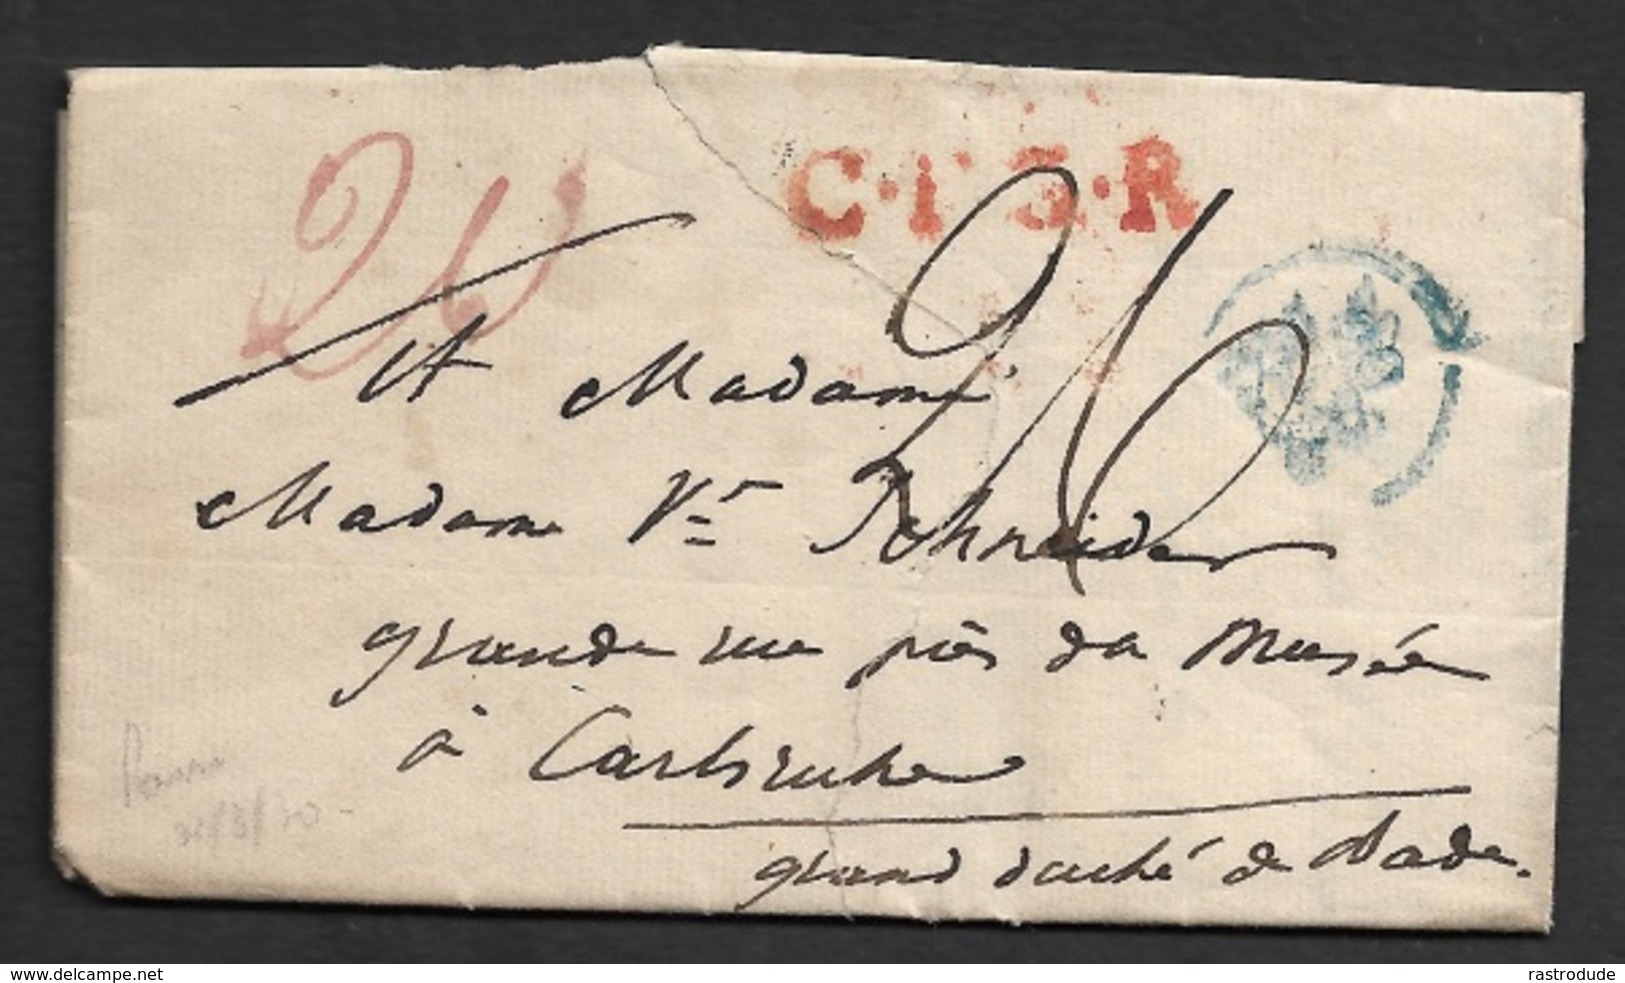 26
C.F.3.R
26
A Madame
Madame Vᵉ Schneider
grande rue près du Musée
à Carlsruhe
grand duché de Bade.
www.delcampe.net
rastrodude